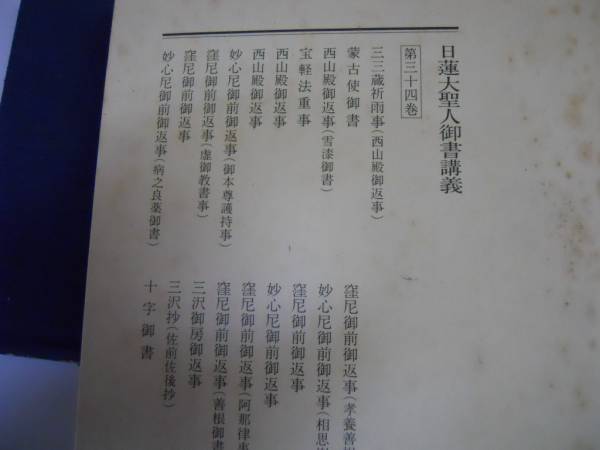 日蓮大聖人御書講義
第三十四巻
三三蔵祈雨事(西山殿御返事)
蒙古使御書
西山殿御返事(雪漆御書)
宝軽法重事
西山殿御返事
西山殿御返事
妙心尼御前御返事(御本尊護持事)
窪尼御前御返事(虚御教書事)
窪尼御前御返事
妙心尼御前御返事(病之良薬御書)
窪尼御前御返事(孝養善根
妙心尼御前御返事(相思
窪尼御前御返事
妙心尼御前御返事
窪尼御前御返事(阿那律事
窪尼御前御返事(善根御書
三沢御房御返事
三沢抄(佐前佐後抄)
十字御書